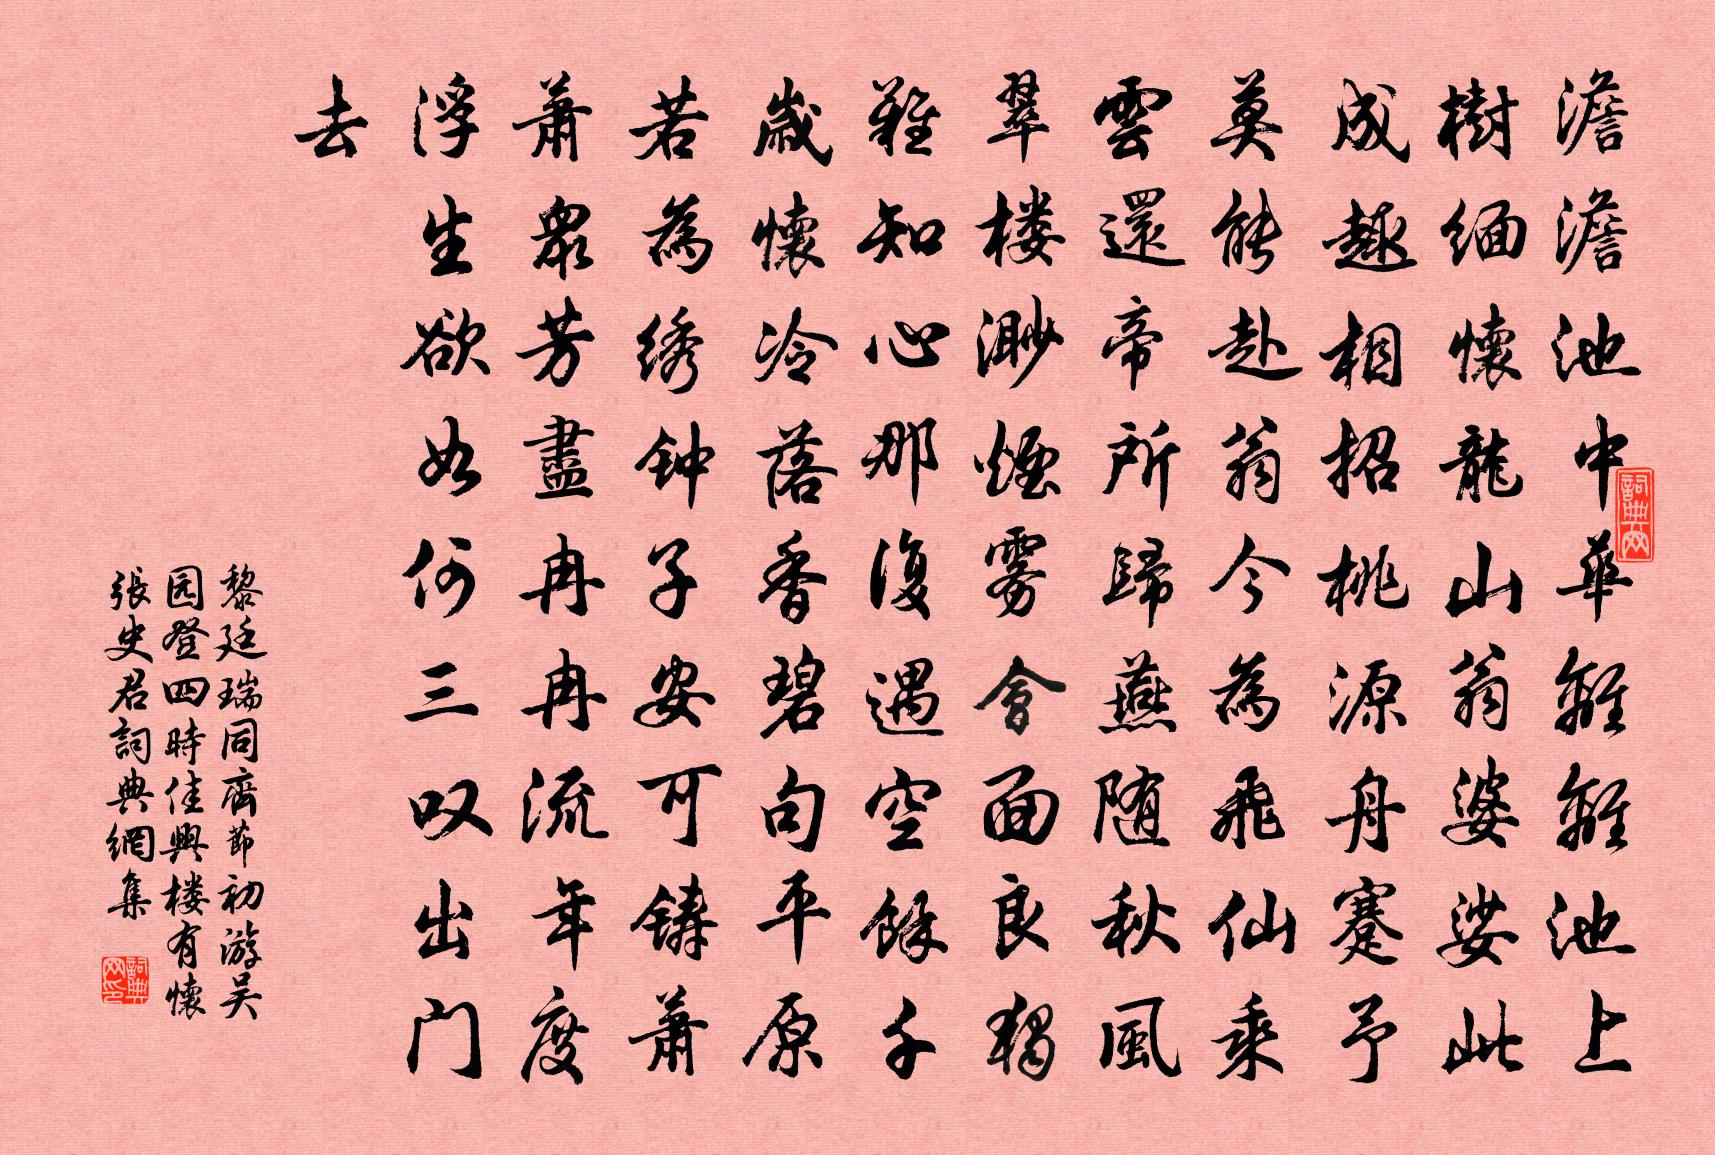 澹澹池中華離離池上
樹缅懷龍山翁婆娑此
成趣相招桃源舟蹇予
莫能赴翁今為飛仙乘
雲還帝所歸燕随秋風
翠楼渺煙雾會面良獨
難知心那復遇空餘千
歲懷冷落香碧句平原
若為绣钟子安可铸蕭
蕭眾芳盡冉冉流年度
浮生欲如何三叹出门
去
黎廷瑞同齊節初游吴
园登四時佳興楼有懷
張史君詞典網集
詞典网
詞典网印